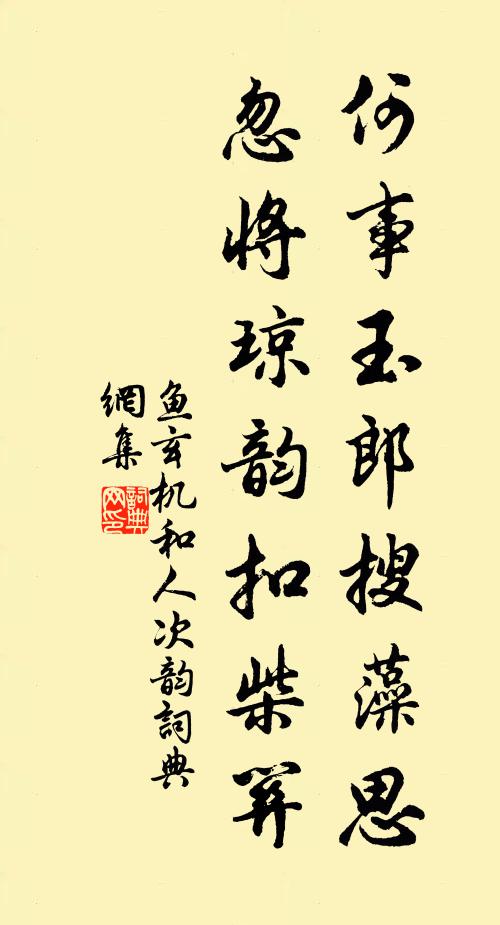 何事玉郎搜藻思
忽将琼韵扣柴関
鱼玄机和人次韵詞典
網集
詞典
网印